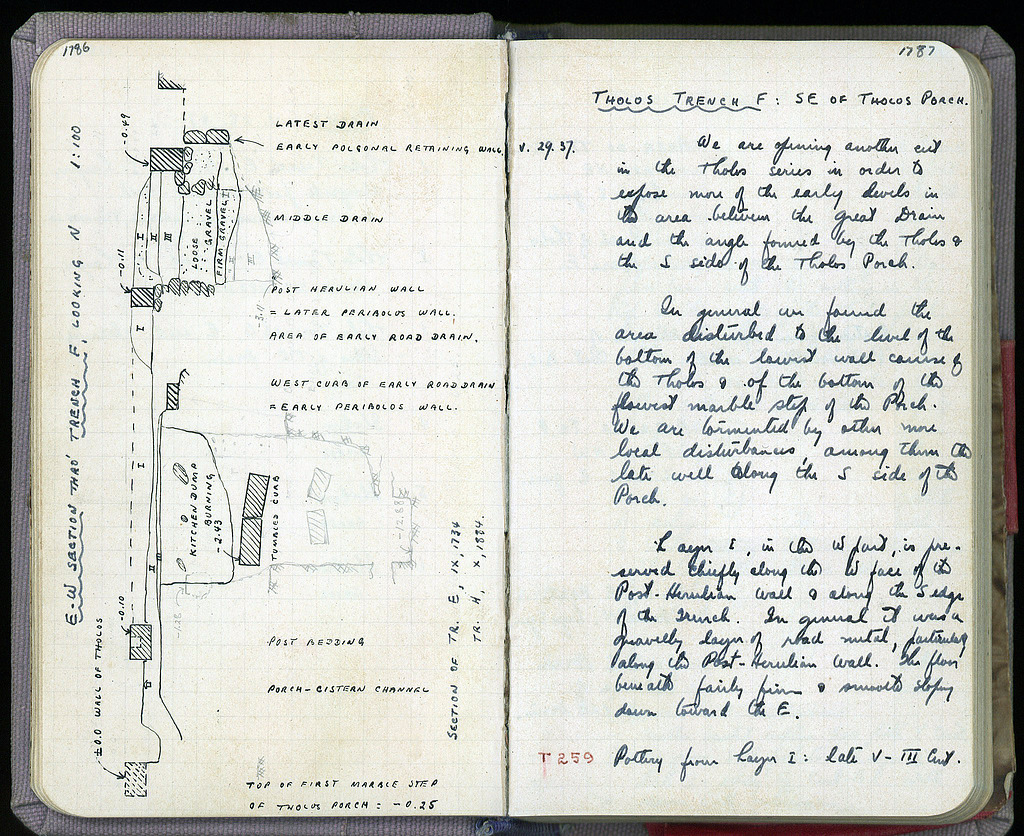 1786
E-W SECTION THRO' TRENCH F, LOOKING N 1:100
-0.49
LATEST DRAIN
EARLY POLGONAL RETAINING WALL
I
II
III
LOOSE GRAVEL
FIRM GRAVEL
MIDDLE DRAIN
-0.11
POST HERULIAN WALL
= LATER PERIBOLOS WALL.
AREA OF EARLY ROAD DRAIN.
-3.11
I
WEST CURB OF EARLY ROAD DRAIN
= EARLY PERIBOLOS WALL.
I
KITCHEN DUMP
BURNING
-2.43
TUMBLED CURB
-12.88
II
-0.10
POST BEDDING
PORCH-CISTERN CHANNEL
±0.0 WALL OF THOLOS
SECTION OF TR. E, IX, 1734
TR. H, X, 1884.
TOP OF FIRST MARBLE STEP
OF THOLOS PORCH = -0.25
1787
THOLOS TRENCH F: SE OF THOLOS PORCH.
V. 29. 37. We are opening another cut
in the Tholos series in order to
expose more of the early levels in
the area between the great Drain
and the angle formed by the Tholos &
the S side of the Tholos Porch.
In general we found the
area disturbed to the level of the
bottom of the lowest wall course of
the Tholos & of the bottom of the
lowest marble step of the Porch.
We are tormented by other more
local disturbances, among them the
late well along the S side of the
Porch.
Layer I, in the W part, is pre-
served chiefly along the W face of the
Post-Herulian Wall & along the S edge
of the Trench. In general it was a
gravelly layer of road metal, particularly
along the Post-Herulian Wall. The floor
beneath fairly firm & smooth sloping
down toward the E.
T 259 Pottery from Layer I: late V - III Cent.